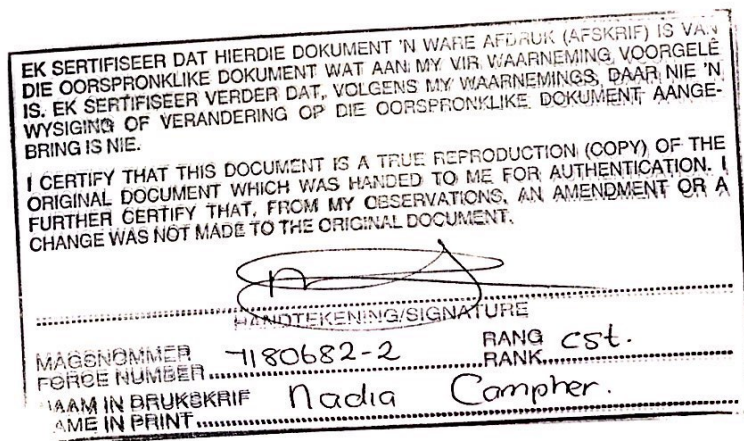 EK SERTIFISEER DAT HIERDIE DOKUMENT 'N WARE AFDRUK (AFSKRIF) IS VAN
DIE OORSPRONKLIKE DOKUMENT WAT AAN MY VIR WAARNEMING VOORGELÊ
IS. EK SERTIFISEER VERDER DAT, VOLGENS MY WAARNEMINGS, DAAR NIE 'N
WYSIGING OF VERANDERING OP DIE OORSPRONKLIKE DOKUMENT AANGE-
BRING IS NIE.
I CERTIFY THAT THIS DOCUMENT IS A TRUE REPRODUCTION (COPY) OF THE
ORIGINAL DOCUMENT WHICH WAS HANDED TO ME FOR AUTHENTICATION. I
FURTHER CERTIFY THAT, FROM MY OBSERVATIONS, AN AMENDMENT OR A
CHANGE WAS NOT MADE TO THE ORIGINAL DOCUMENT.
HANDTEKENING/SIGNATURE
MAGSNOMMER RANG
FORCE NUMBER 7180682-2 RANK cst.
NAAM IN DRUKSKRIF
NAME IN PRINT Nadia Campher.